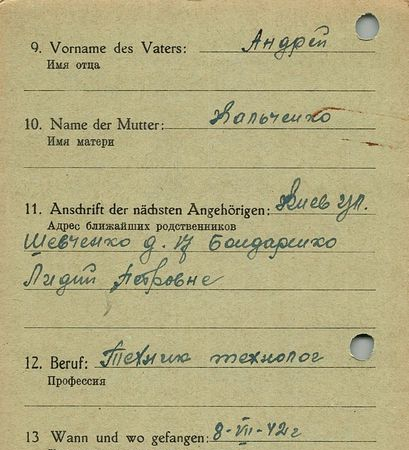 9. Vorname des Vaters: Андрей
Имя отца
10. Name der Mutter: Кальченко
Имя матери
11. Anschrift der nächsten Angehörigen: Киев ул.
Адрес ближайших родственников
Шевченко д. 17 Бондаренко
Лидии Петровне
12. Beruf: Техник технолог
Профессия
13 Wann und wo gefangen: 8-VII-42г